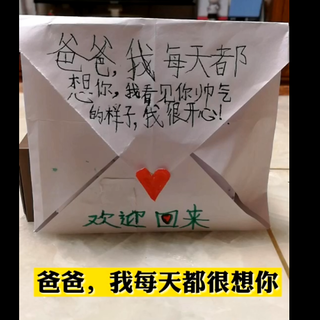 爸爸，我每天都
想你，我看见你帅气
的样子，我很开心！
欢迎回来
爸爸，我每天都很想你